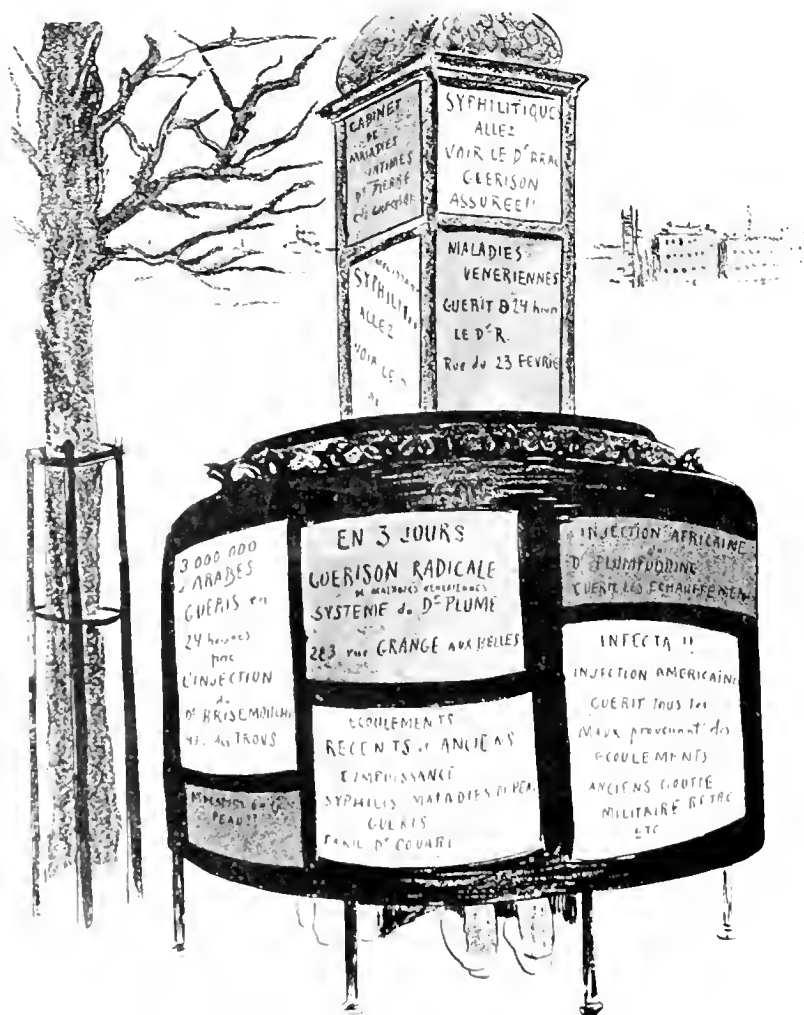 CABINET
DE
MALADIES
INTIMES
Dr PIERRE
SYPHILITIQUES
ALLEZ
VOIR LE Dr
GUERISON
ASSUREE!!
SYPHILI
ALLEZ
VOIR LE
MALADIES
VENERIENNES
GUERIT 24 heures
LE Dr R.
Rue du 23 FEVRIE
3 000 000
d'ARABES
GUERIS en
24 heures
par
L'INJECTION
du
Dr BRISEMOUCHE
des TROUS
PEAU??
EN 3 JOURS
GUERISON RADICALE
DE MALADIES VENERIENNES
SYSTEME du Dr PLUME
2E3 rue GRANGE AUX BELLES
ECOULEMENTS
RECENTS et ANCIENS
L'IMPUISSANCE
SYPHILIS MALADIES DE PEAU
GUERIS
Dr
INJECTION AFRICAINE
du
Dr PLUMPUDDING
GUERIT LES ECHAUFFEMEN
INFECTA !!
INJECTION AMERICAINE
GUERIT tous les
MAUX provenant des
ECOULEMENTS
ANCIENS GOUTTE
MILITAIRE
ETC